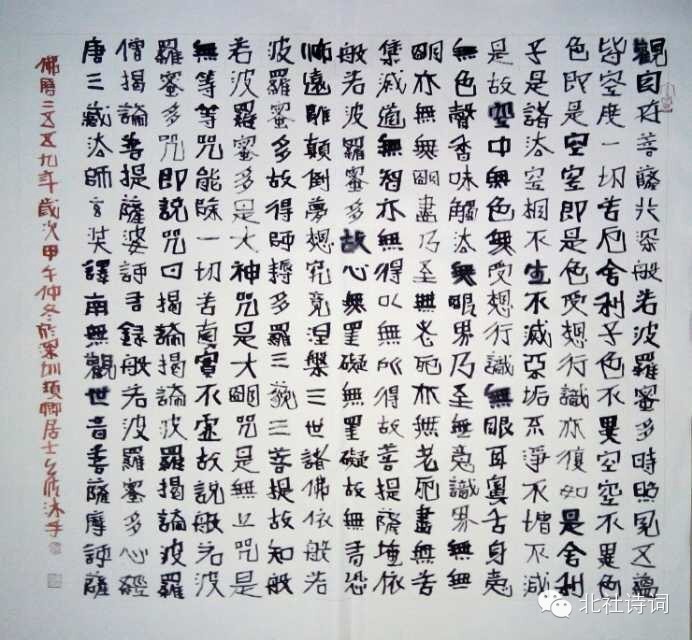 觀自在菩薩行深般若波羅蜜多時照見五蘊
皆空度一切苦厄舍利子色不異空空不異色
色即是空空即是色受想行識亦復如是舍利
子是諸法空相不生不滅不垢不淨不增不減
是故空中無色無受想行識無眼耳鼻舌身意
無色聲香味觸法無眼界乃至無意識界無無
明亦無無明盡乃至無老死亦無老死盡無苦
集滅道無智亦無得以無所得故菩提薩埵依
般若波羅蜜多故心無罣礙無罣礙故無有恐
怖遠離顛倒夢想究竟涅槃三世諸佛依般若
波羅蜜多故得阿耨多羅三藐三菩提故知般
若波羅蜜多是大神咒是大明咒是無上咒是
無等等咒能除一切苦真實不虛故說般若波
羅蜜多咒即說咒曰揭諦揭諦波羅揭諦波羅
僧揭諦菩提薩婆訶右録般若波羅蜜多心經
唐三藏法師玄奘譯南無觀世音菩薩摩訶薩
佛曆二五五九年歲次甲午仲冬於深圳卿居士沐手
北社诗词